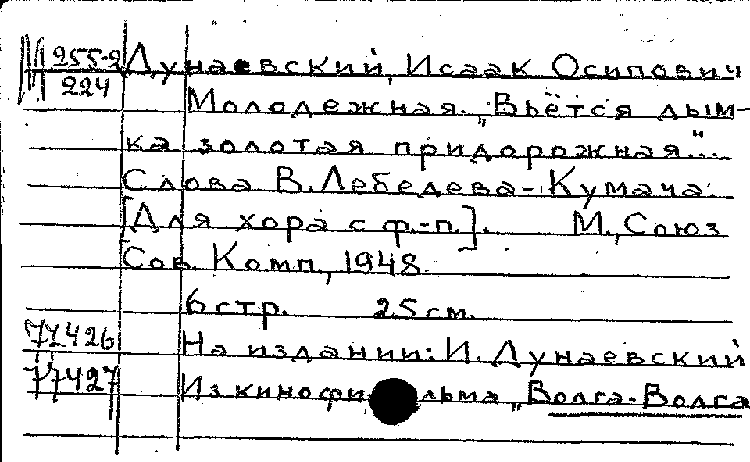 М 255-2 Дунаевский, Исаак Осипович
224
Молодежная. „Вьётся дым-
ка золотая придорожная"...
Слова В. Лебедева-Кумача.
[Для хора с ф.-п.]. М., Союз
Сов. Комп., 1948.
6 стр. 25 см.
77426 На издании: И. Дунаевский
77427 Из кинофильма „Волга-Волга